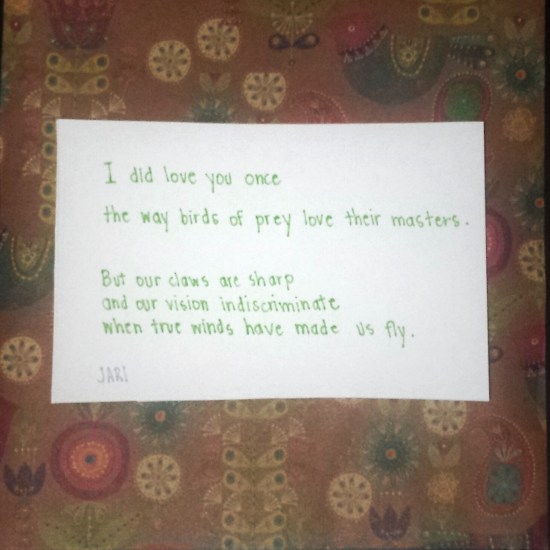 I did love you once
the way birds of prey love their masters.
But our claws are sharp
and our vision indiscriminate
when true winds have made us fly.
JARI